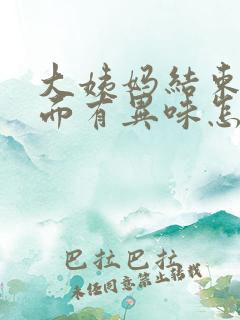 大姨妈結束
而有異味怎
巴拉巴拉
未经同意禁止转载